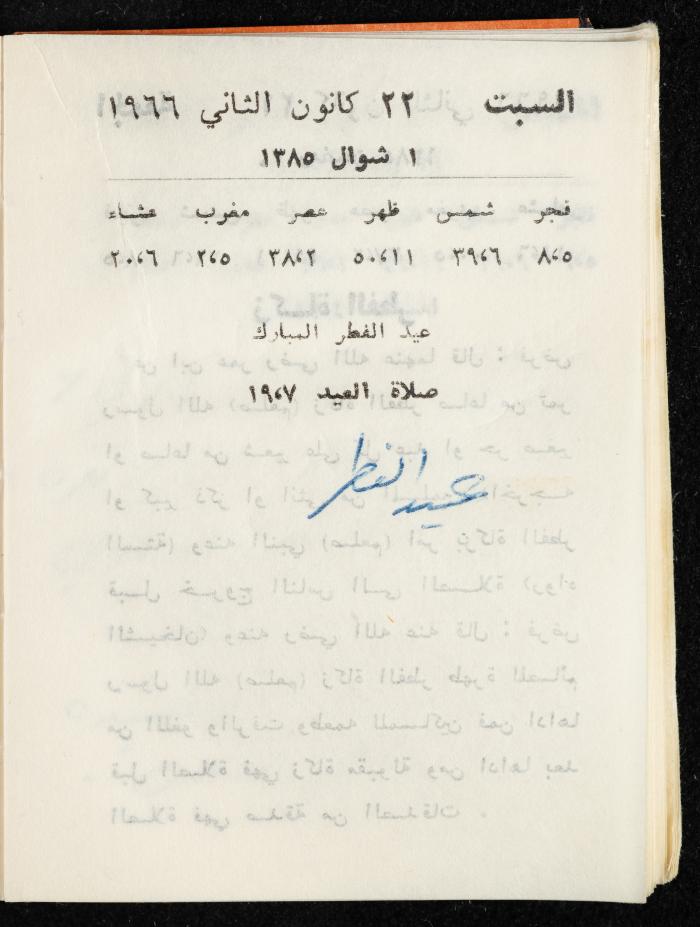 السبت ٢٢ كانون الثاني ١٩٦٦
١ شوال ١٣٨٥
فجر شمس ظهر عصر مغرب عشاء
٨،٥ ٣٩،٦ ٥٠،١١ ٣٨،٢ ٢،٥ ٢٠،٦
عيد الفطر المبارك
صلاة العيد ١٩،٧
عيد الفطر